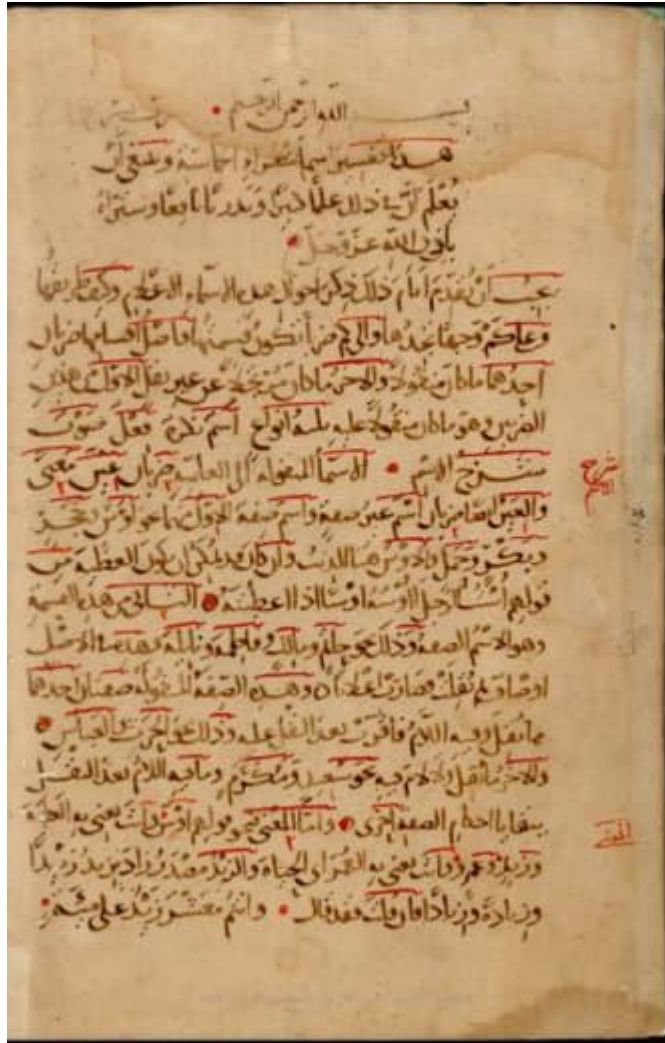 بسم الله الرحمن الرحيم
هذا تفسير اسماء شعراء الحماسة وينبغي ان
يعلم ان في ذلك علما كثيرا وتدربا نافعا وستراه
باذن الله عز وجل
يجب ان نقدم امام ذلك ذكر احوال هذه الاسماء الاعلام وكيف طريقها
وعلى كم وجها نجدها والى كم ضربا تكون قسمتها فاصل انقسامها ضربان
احدهما ما كان منقولا والاخر ما كان مرتجلا عن غير نقل الاول من هذين
الضربين وهو ما كان منقولا عليه ثلثة انواع اسم نكرة فعل صوت
شرح الاسم الاسماء المنقولة الى العلمية ضربان عين معنى
شرح الاسم
والعين ايضا ضربان اسم غير صفة واسم صفة الاول منهما نحو اوس وحجر
وبكر وحمل والاوس هنا الذئب وان كان قد يمكن ان يكون العطية من
قولهم است الرجل اؤوسه اوسا اذا اعطيته الثاني من هذه القسمة
وهو الاسم الصفة وذلك نحو حاتم ومالك وفاطمة ونائلة فهذه في الاصل
اوصاف ثم نقلت فصارت اعلاما وهذه الصفة المنقولة صفتان احدهما
ما نقل وفيه اللام فاقرت بعد النقل عليه وذلك نحو الحرث والعباس
والاخر ما نقل ولا لام فيه نحو سعيد ومكرم وما فيه اللام بعد النقل
ببقايا احكام الصفة احرى واما المعنى فنحو قولهم اوس وانت يعني به العطية
المعنى
وزيد وعمرو وانت يعني به العمر اي الحياة والزيد مصدر زاد يزيد زيدا
وزيادة وزيادا قال وانتم معشر زيد على مئة